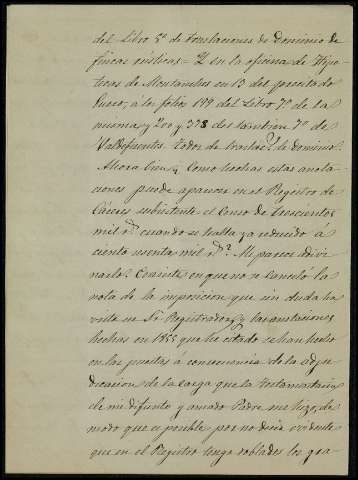 del Libro 5º de traslaciones de Dominio de
fincas rústicas = Y en la oficina de Hipo-
tecas de Montanches en 13 del precitado
Enero, á los folios 199 del Libro 7º de la
misma, y 200 y 378 del tambien 7º de
Valdefuentes. todos de traslac.s de dominio.
Ahora bien, ¿Como hechas estas anota-
ciones puede aparecer en el Registro de
Cáceres subsistente el Censo de trescientos
mil r.s cuando se halla ya reducido á
ciento ochenta mil r.s? Mi parecer adivi-
narlo. Consiste en que no se canceló la
nota de la imposicion que sin duda ha
visto ese Sr. Registrador, y las anotaciones
hechas en 1855 que he citado se han hecho
en las puestas á consecuencia de la adju-
dicacion de la carga que la testamentaria
de mi difunto y amado Padre me hizo, de
modo que es posible por no decir evidente
que en el Registro tengo doblados los gra-